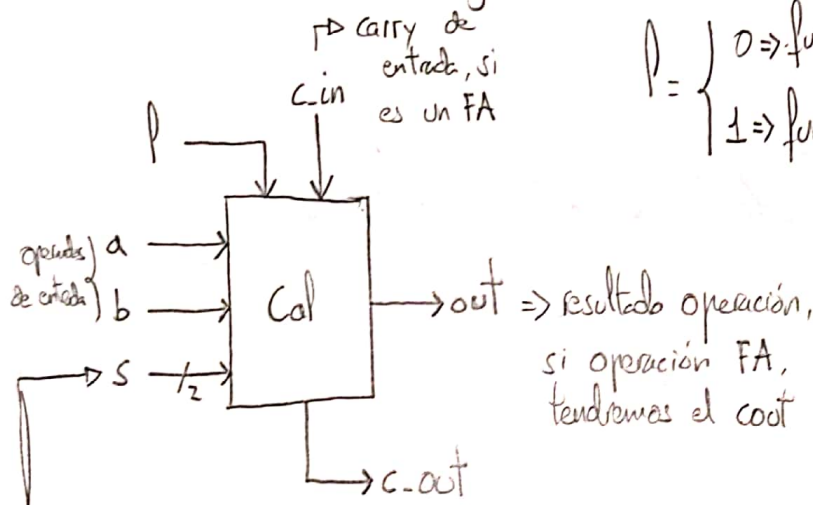 carry de
entrada, si
es un FA
c_in
l
l = { 0 => fu
1 => fu
a
de entrada
b
Cal
out => resultado operación,
si operación FA,
tendremos el coot
s
2
c_out